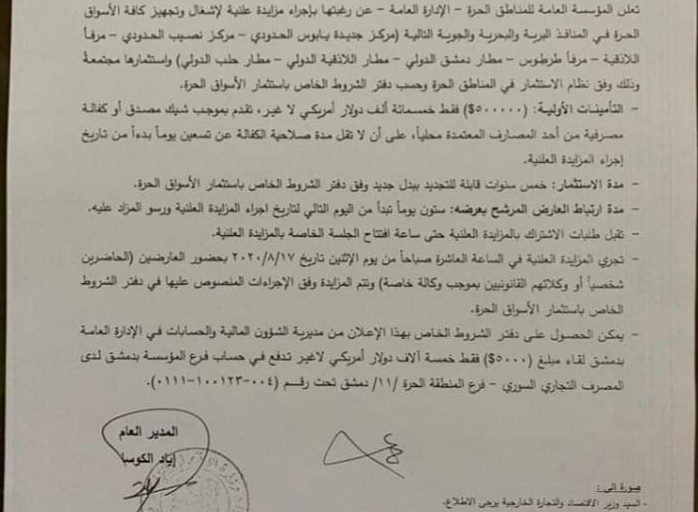 تعلن المؤسسة العامة للمناطق الحرة – الإدارة العامة – عن رغبتها بإجراء مزايدة علنية لإشغال وتجهيز كافة الأسواق
الحرة في المنافذ البرية والبحرية والجوية التالية (مركز جديدة يابوس الحدودي – مركز نصيب الحدودي – مرفأ
اللاذقية – مرفأ طرطوس – مطار دمشق الدولي – مطار اللاذقية الدولي – مطار حلب الدولي) واستثمارها مجتمعةً
وذلك وفق نظام الاستثمار في المناطق الحرة وحسب دفتر الشروط الخاص باستثمار الأسواق الحرة.
– التأمينات الأولية: (٥٠٠٠٠٠$) فقط خمسمائة ألف دولار أمريكي لا غير، تقدم بموجب شيك مصدق أو كفالة
مصرفية من أحد المصارف المعتمدة محلياً، على أن لا تقل مدة صلاحية الكفالة عن تسعين يوماً بدءاً من تاريخ
إجراء المزايدة العلنية.
– مدة الاستثمار: خمس سنوات قابلة للتجديد ببدل جديد وفق دفتر الشروط الخاص باستثمار الأسواق الحرة.
– مدة ارتباط العارض المرشح بعرضه: ستون يوماً تبدأ من اليوم التالي لتاريخ اجراء المزايدة العلنية ورسو المزاد عليه.
– تقبل طلبات الاشتراك بالمزايدة العلنية حتى ساعة افتتاح الجلسة الخاصة بالمزايدة العلنية.
– تجري المزايدة العلنية في الساعة العاشرة صباحاً من يوم الإثنين تاريخ ٢٠٢٠/٨/١٧ بحضور العارضين (الحاضرين
شخصياً أو وكلائهم القانونيين بموجب وكالة خاصة) وتتم المزايدة وفق الإجراءات المنصوص عليها في دفتر الشروط
الخاص باستثمار الأسواق الحرة.
– يمكن الحصول على دفتر الشروط الخاص بهذا الإعلان من مديرية الشؤون المالية والحسابات في الإدارة العامة
بدمشق لقاء مبلغ (٥٠٠٠$) فقط خمسة آلاف دولار أمريكي لاغير تدفع في حساب فرع المؤسسة بدمشق لدى
المصرف التجاري السوري – فرع المنطقة الحرة /١١/ دمشق تحت رقم (٠٠٤-١٠٠١٢٣-٠١١١).
المدير العام
إياد الكوسا
صورة إلى:
- السيد وزير الاقتصاد والتجارة الخارجية يرجى الاطلاع.